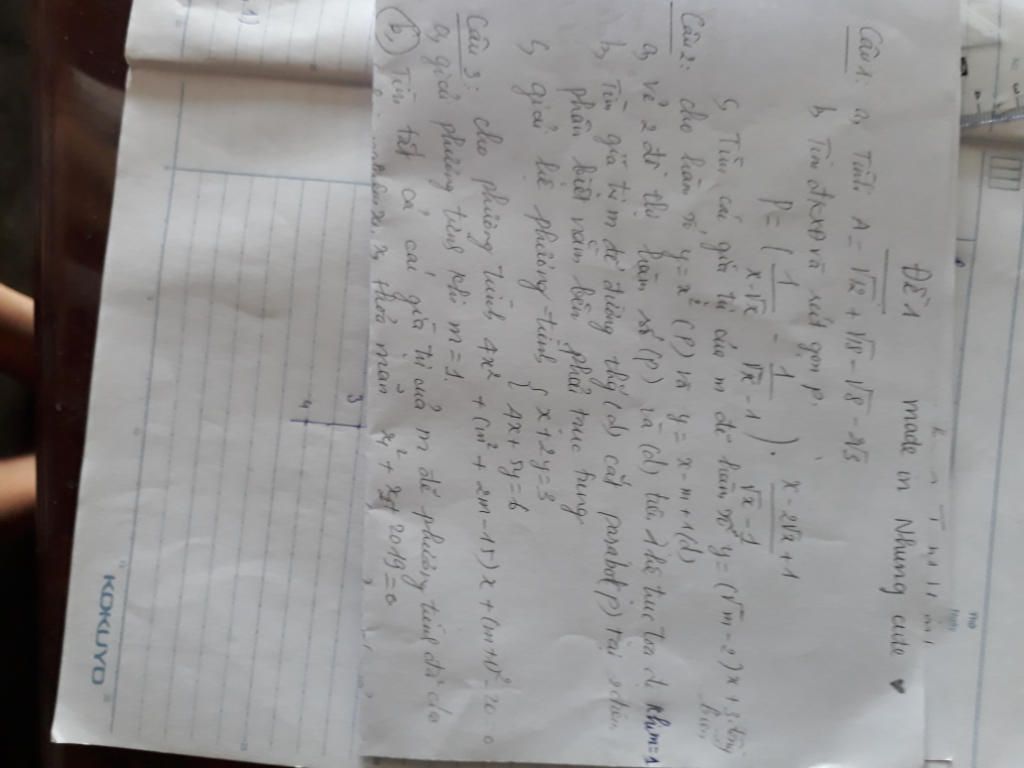 ĐỀ 1 made in Nhung cute ♥
Câu 1: a, Tính A = √12 + √18 - √8 - 2√3
b, Tìm đkxđ và rút gọn P.
P = ( 1/(x-√x) - 1/(√x-1) ) · (x-2√x+1)/(√x-1)
c, Tìm các giá trị của m để hàm số y = (√m - 2)x + 3 đồng
biến
Câu 2: cho hàm số y = x² (P) và y = x - m + 1 (d)
a, vẽ 2 đồ thị hàm số (P) và (d) trên 1 hệ trục tọa độ khi m = 1
b, Tìm giá trị m để đường thẳng (d) cắt parabol (P) tại 2 điểm
phân biệt nằm bên phải trục tung
c, giải hệ phương trình { x + 2y = 3
4x + 5y = 6
Câu 3: cho phương trình 4x² + (m² + 2m - 15)x + (m+1)² - 20 = 0
a, giải phương trình khi m = 1.
b, Tìm tất cả các giá trị của m để phương trình đã cho
x₂ thỏa mãn x₁² + x₂ + 2019 = 0
KOKUYO